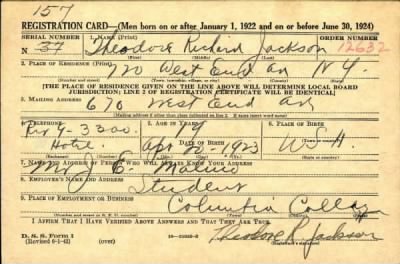 157
REGISTRATION CARD—(Men born on or after January 1, 1922 and on or before June 30, 1924)
SERIAL NUMBER 1. Name (Print) ORDER NUMBER
N 37 Theodore Richard Jackson 12632
(First) (Middle) (Last)
2. Place of Residence (Print)
720 West End Av N.Y.
(Number and street) (Town, township, village, or city) (County) (State)
[THE PLACE OF RESIDENCE GIVEN ON THE LINE ABOVE WILL DETERMINE LOCAL BOARD
JURISDICTION; LINE 2 OF REGISTRATION CERTIFICATE WILL BE IDENTICAL]
3. Mailing Address
670 West End Av
[Mailing address if other than place indicated on line 2. If same insert word same]
4. Telephone 5. Age in Years 6. Place of Birth
Riv 9-3300 19
Hotel Apr 20-1923 U.S.A.
(Exchange) (Number) (Mo.) (Day) (Yr.) (State or country)
7. Name and Address of Person Who Will Always Know Your Address
J. E.
8. Employer's Name and Address
Student
9. Place of Employment or Business
Columbia College
(Number and street or R. F. D. number) (Town) (County) (State)
I Affirm That I Have Verified Above Answers and That They Are True.
D. S. S. Form 1
(Revised 6-1-42) (over) Theodore R. Jackson
(Registrant's signature)